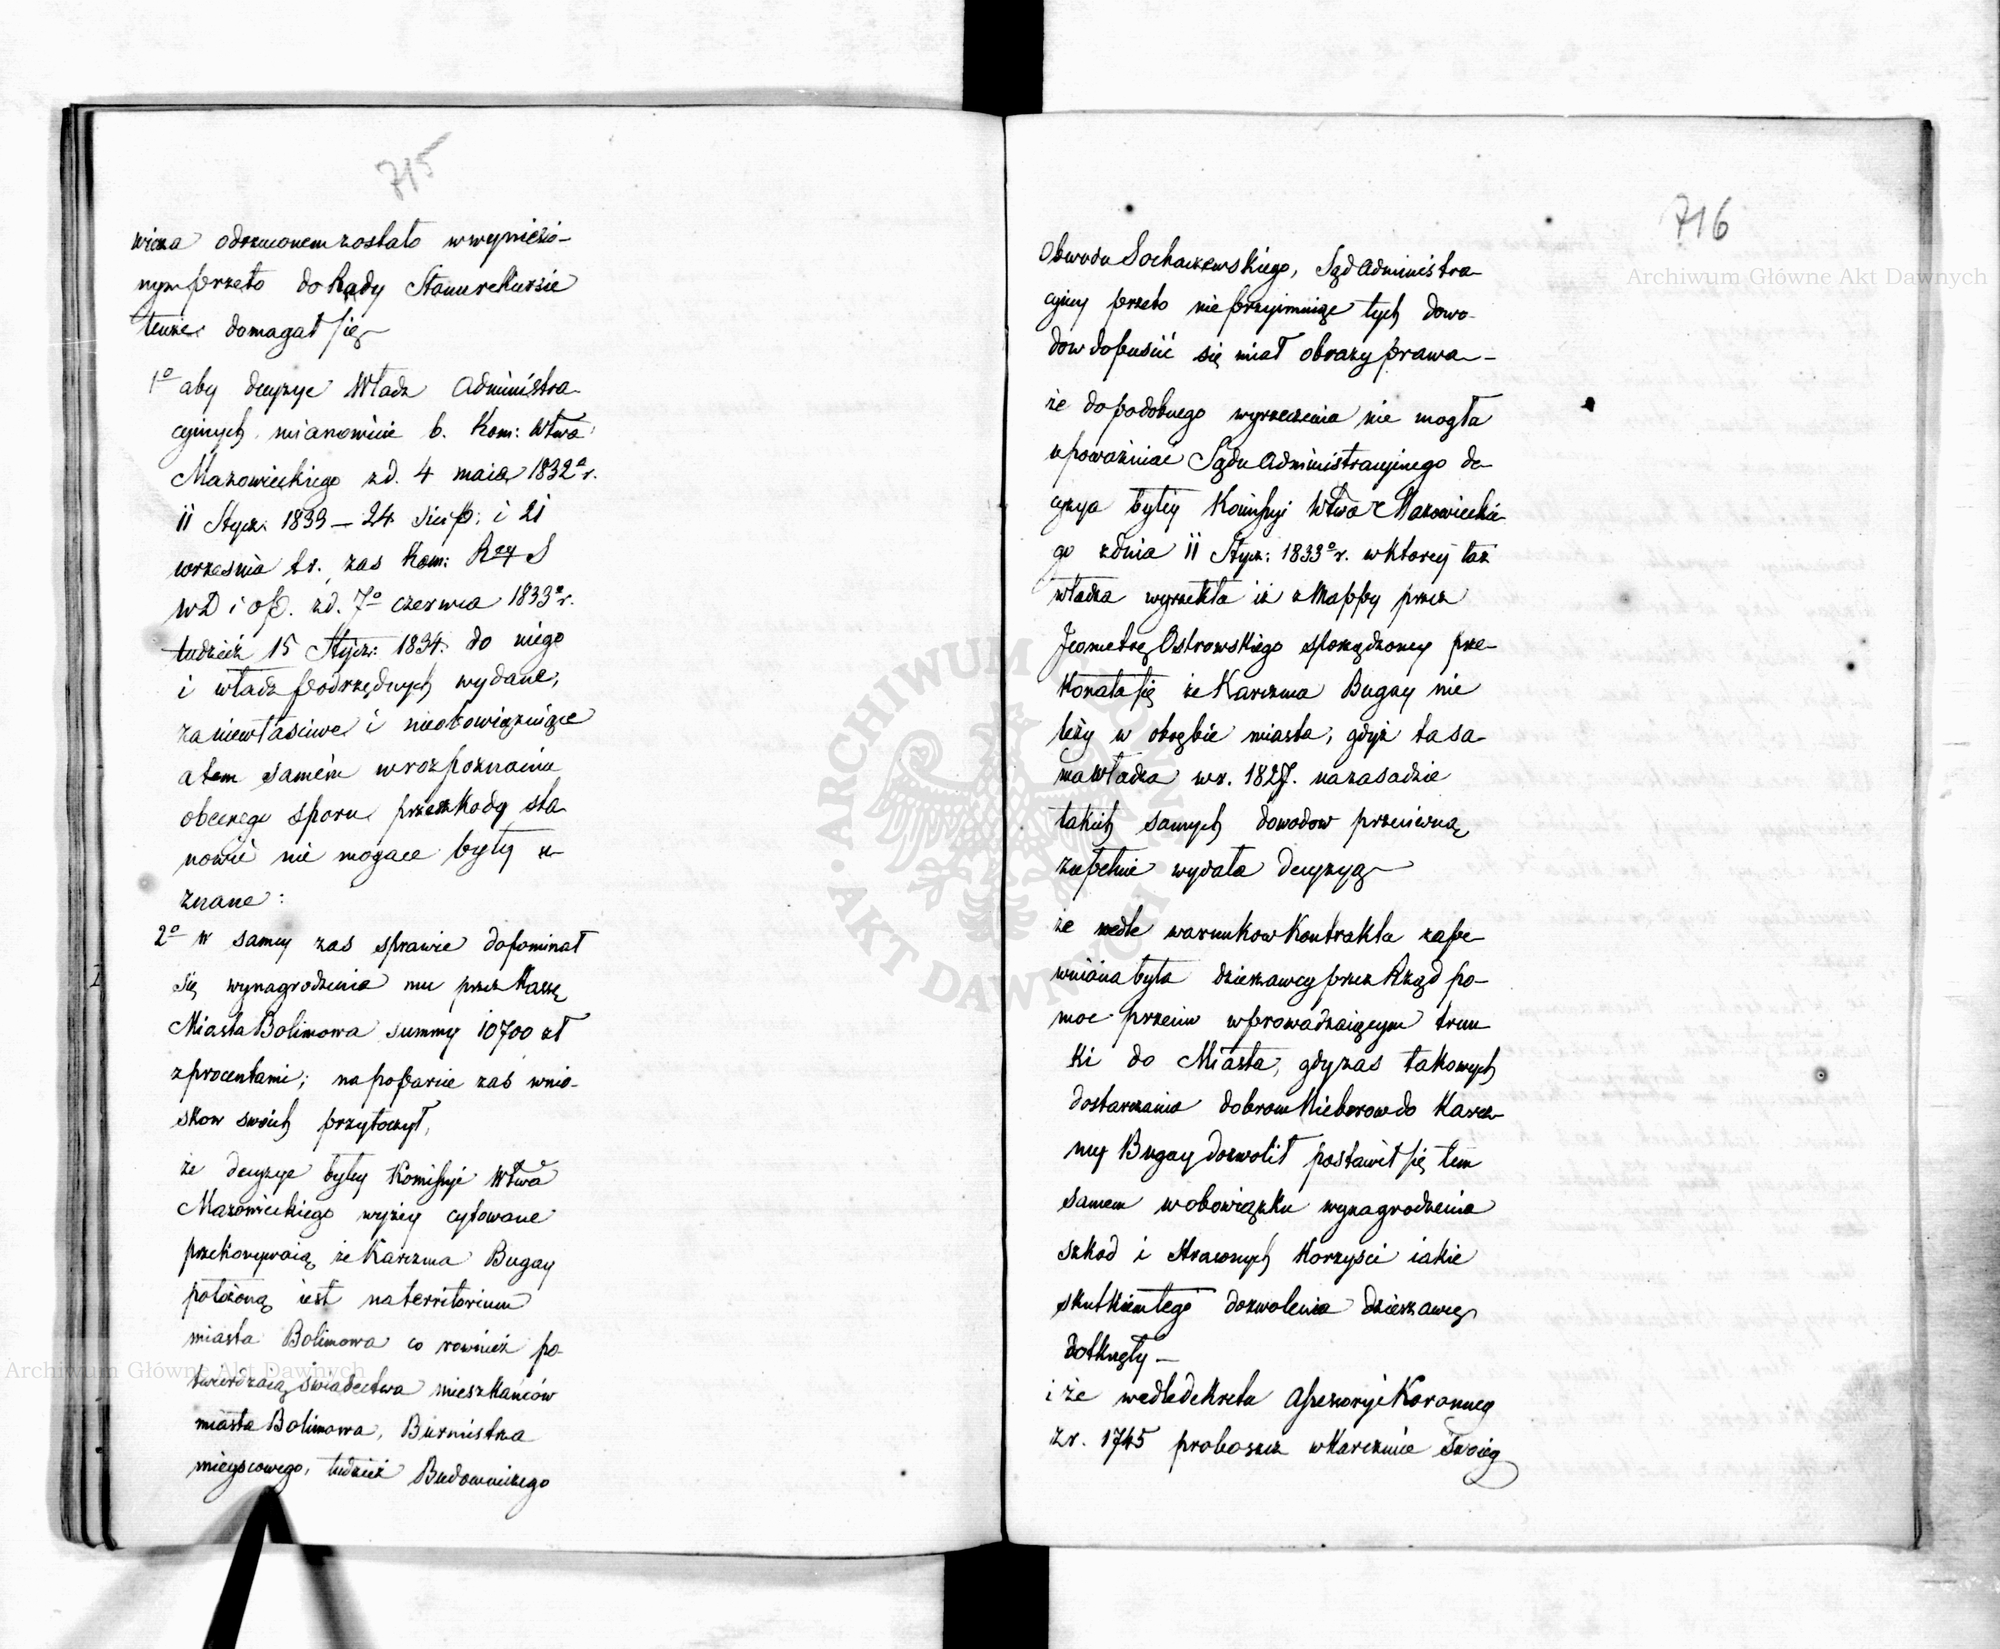 715
wicza odrzuconem zostało w wyniesio-
nym przeto do Rady Stanu rekursie
tenże domagał się
1º aby decyzye Władz Administra-
cyinych mianowicie b. Kom: Wtwa
Mazowieckiego z d. 4 maia 1832º r.
11 Stycz: 1833 – 24 Sierp: i 21
września t.r. zas Kom: Rząy S
W D i O.P. z d. 7º czerwca 1833º r.
tudzież 15 Stycz: 1834. do niego
i władz podrzędnych wydane,
za niewłaściwe i nieobowiązuiące
a tem samém w rozpoznaniu
obecnego sporu przeszkody sta-
nowić nie mogące były u-
znane:
2º w samey zas sprawie dopominał
się wynagrodzenia mu przez Kassę
Miasta Bolimowa summy 10700 zł
z procentami; na poparcie zaś wnio-
skow swoich przytoczył,
że decyzye byłey Kommissyi Wtwa
Mazowieckiego wyżey cytowane
przekonywaią, że Karczma Bugay
położoną iest na territorium
miasta Bolimowa co rownież po-
twierdzaią świadectwa mieszkańców
miasta Bolimowa, Burmistrza
mieyscowego, tudzież Budowniczego
716
Obwodu Sochaczewskiego, Sąd Administra-
cyiny przeto nie przyimuiąc tych dowo-
dow dopuścić się miał obrazy prawa –
że do podobnego wyrzeczenia nie mogła
upoważniać Sądu Administracyinego de-
cyzya byłey Komissyi Wtwa Mazowieckie-
go z dnia 11 Stycz: 1833º r. w ktorey taż
władza wyrzekła iż z Mappy przez
Jeometrę Ostrowskiego sporządzoney prze-
konała się że Karczma Bugay nie
leży w obrębie miasta, gdyż ta sa-
ma władza w r. 1827. na zasadzie
takich samych dowodow przeciwną
zupełnie wydała decyzyą
że wedle warunkow Kontraktu zape-
wniona była dzierzawcy przez Rząd po-
moc przeciw wprowadzaiącym trun-
ki do Miasta, gdy zas takowych
dostarczania dobrom Nieborow do Karcz-
my Bugay dozwolił postawił się tem
samem w obowiązku wynagrodzenia
szkod i straconych korzyści iakie
skutkiem tego dozwolenia dzierzawcę
dotknęły –
i że wedle dekretu Assessoryi Koronney
z r. 1745 proboszcz w Karczmie Swoiey
Archiwum Główne Akt Dawnych
Archiwum Główne Akt Dawnych
ARCHIWUM GŁÓWNE AKT DAWNYCH